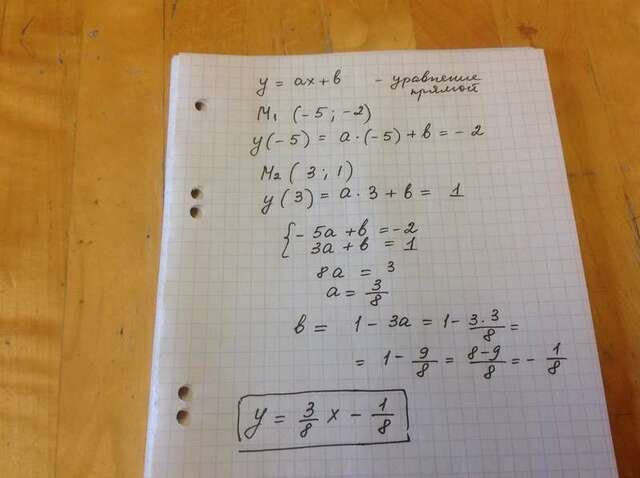 y = ax + b - уравнение прямой
M₁ (-5; -2)
y(-5) = a · (-5) + b = -2
M₂ (3; 1)
y(3) = a · 3 + b = 1
{ -5a + b = -2
3a + b = 1
8a = 3
a = 3/8
b = 1 - 3a = 1 - 3·3/8 =
= 1 - 9/8 = 8-9/8 = - 1/8
y = 3/8 x - 1/8